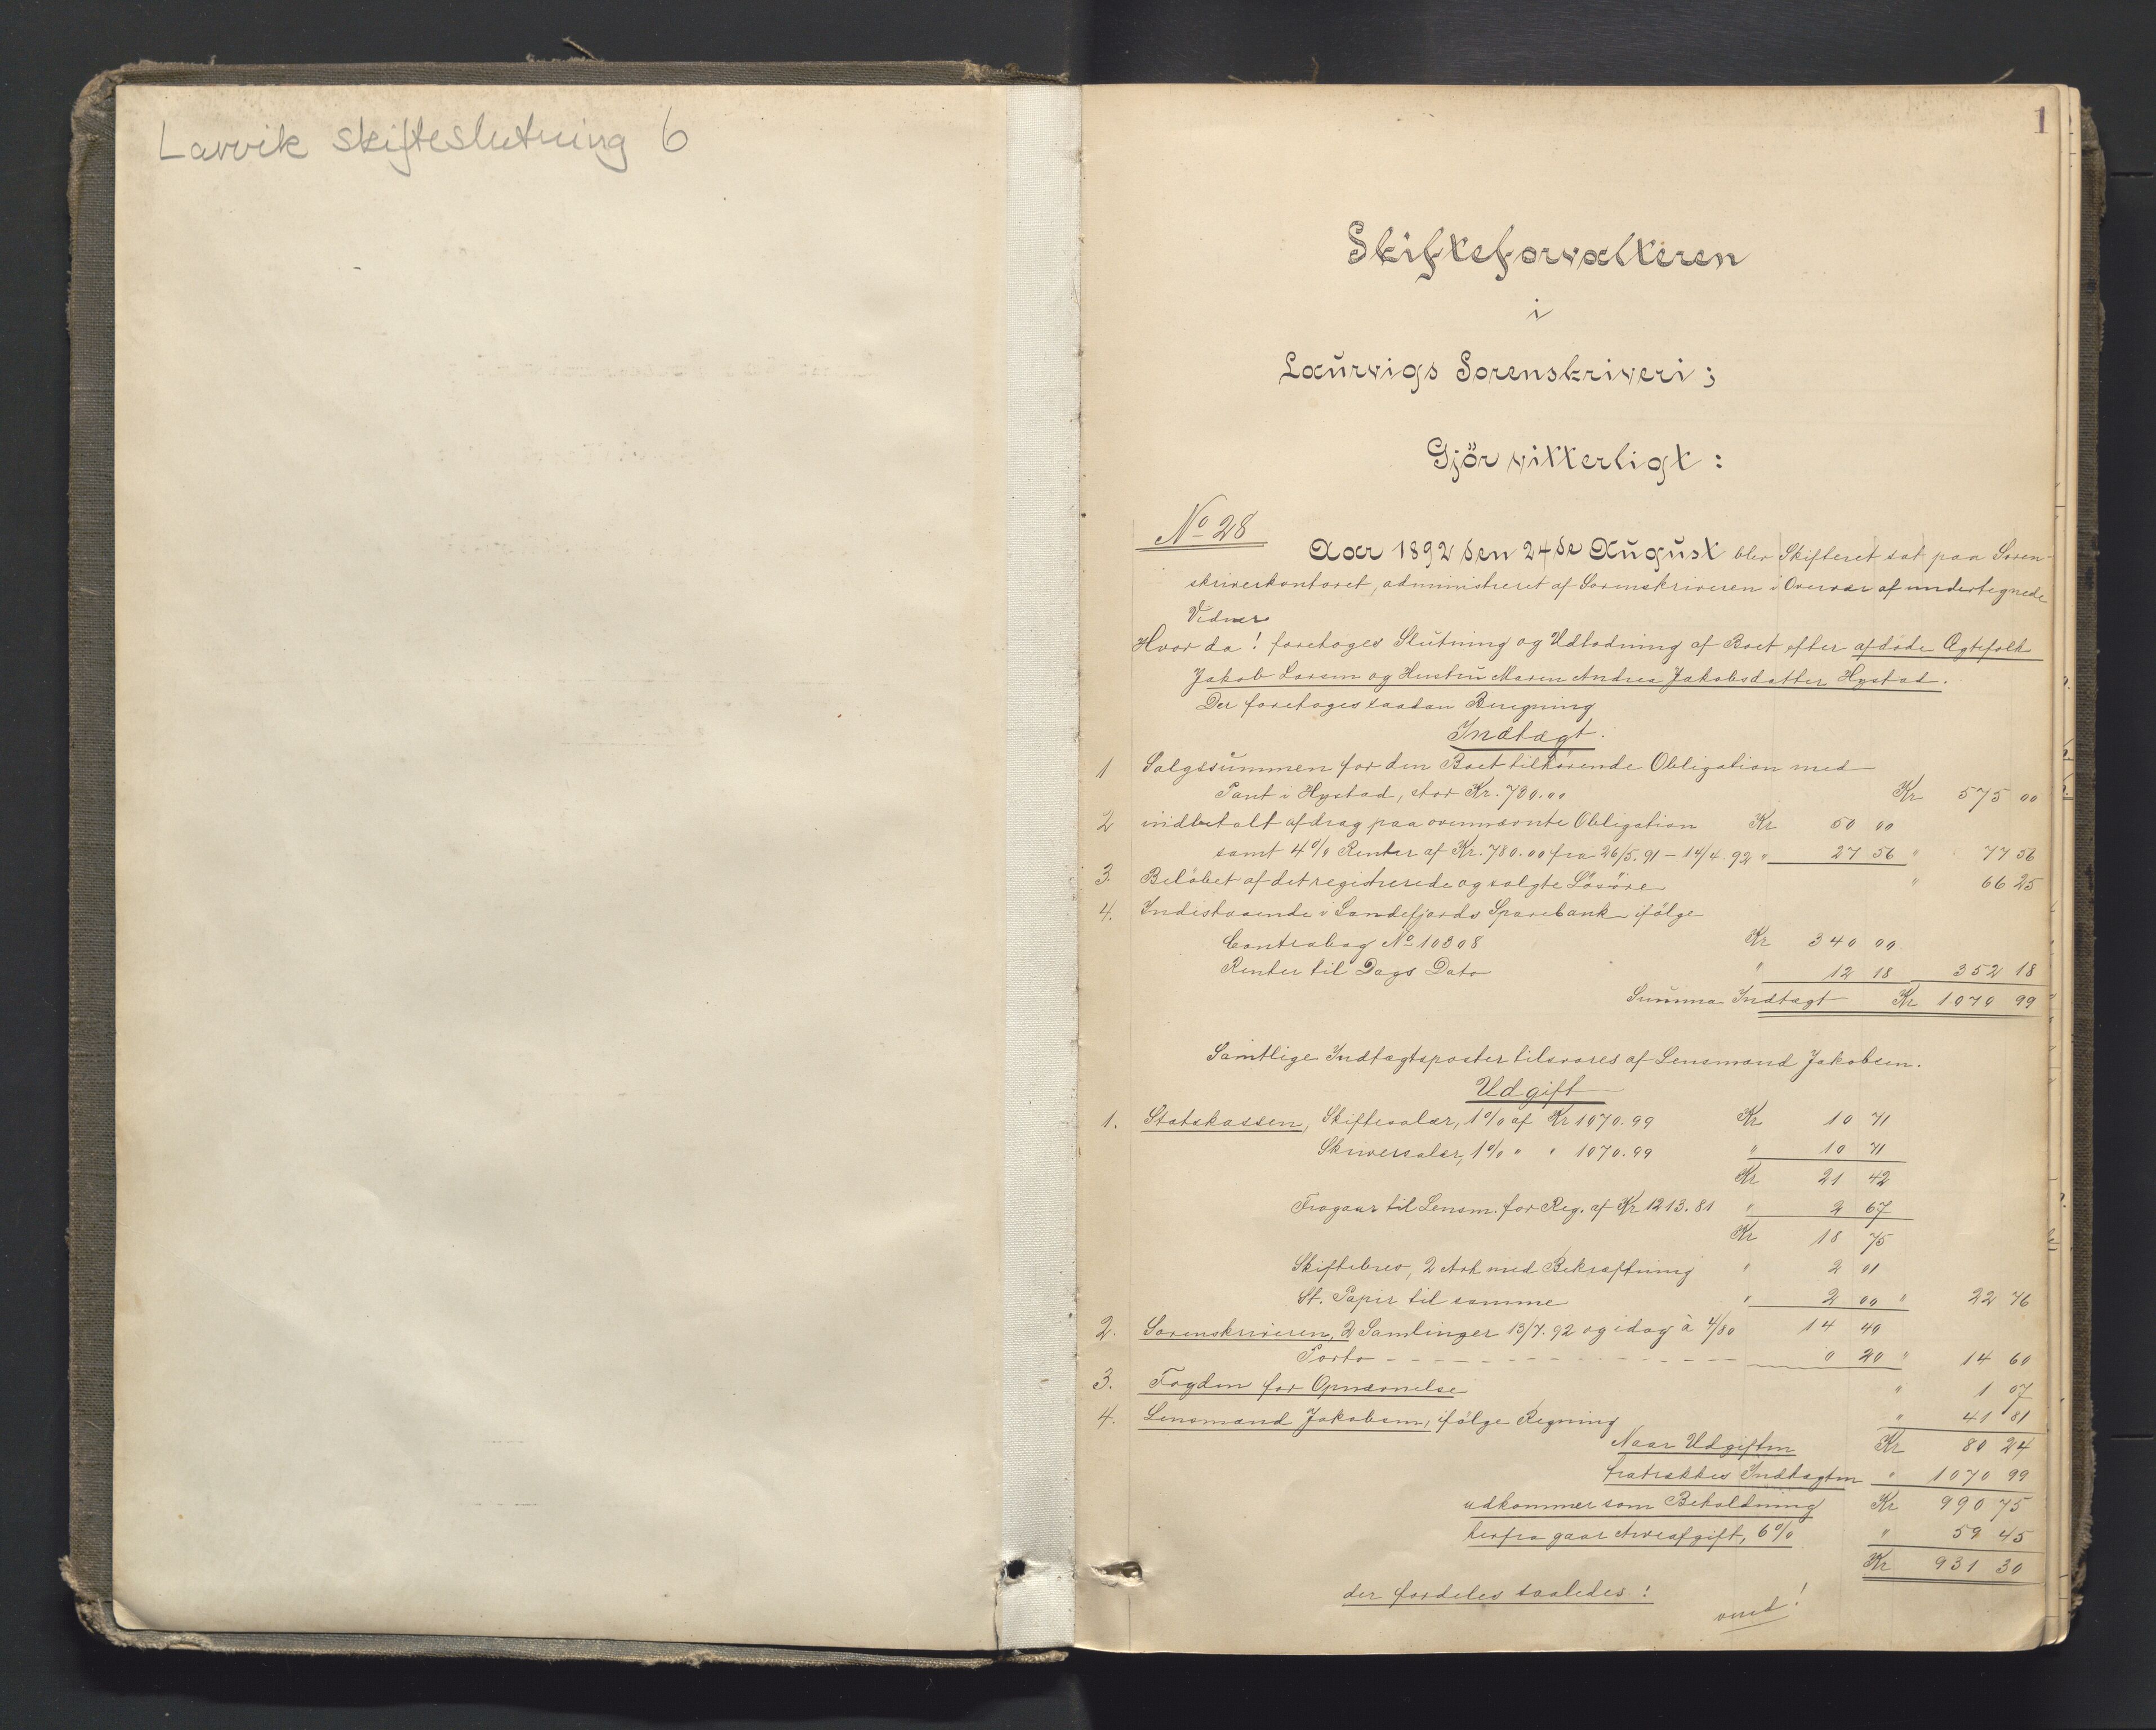 Larvik skifteslutning 6
1
Skifteforvalteren
i
Laurvigs Sorenskriveri;
Gjör vitterligt:
No 28
Aar 1892 den 24de August blev Skifteret sat paa Soren-
skriverkontoret, administreret af Sorenskriveren i Overvær af undertegnede
Vidner
Hvor da! foretoges Slutning og Udlodning af Boet efter afdöde Ægtefolk
Jakob Larsen og Hustru Maren Andrea Jakobsdatter Hystad.
Der foretoges saadan Beregning
Indtægt.
1 Salgssummen for den Boet tilhörende Obligation med
Pant i Hystad, stor Kr. 780.00 Kr 575 00
2 indbetalt afdrag paa ovennævnte Obligation Kr 50 00
samt 4% Renter af Kr. 780.00 fra 26/5.91 - 14/4.92 " 27 56 " 77 56
3. Belöbet af det registrerede og solgte Lösöre " 66 25
4. Indestaaende i Sandefjords Sparebank ifölge
Contrabog No 10308 Kr 340 00
Renter til Dags Dato " 12 18 352 18
Summa Indtægt Kr 1070 99
Samtlige Indtægtsposter tilsvares af Lensmand Jakobsen.
Udgift
1. Statskassen, Skiftesalær, 1% af Kr 1070.99 Kr 10 71
Skriversalær, 1% " " 1070.99 " 10 71
Kr 21 42
Fragaar til Lensm. for Reg. af Kr 1213.81 " 2 67
Kr 18 75
Skiftebrev, 2 Ark med Bekræftning " 2 01
St. Papir til samme " 2 00 " 22 76
2. Sorenskriveren, 2 Samlinger 13/7.92 og idag à 4/80 14 40
Porto - - - - - - - - - - - - 0 20 " 14 60
3. Fogden for Opnævnelse " 1 07
4. Lensmand Jakobsen, ifölge Regning " 41 81
Naar Udgiften Kr 80 24
fratrækkes Indtægten " 1070 99
udkommer som Beholdning Kr 990 75
herfra gaar Arveafgift, 6% " 59 45
Kr 931 30
der fordeles saaledes!
vend!